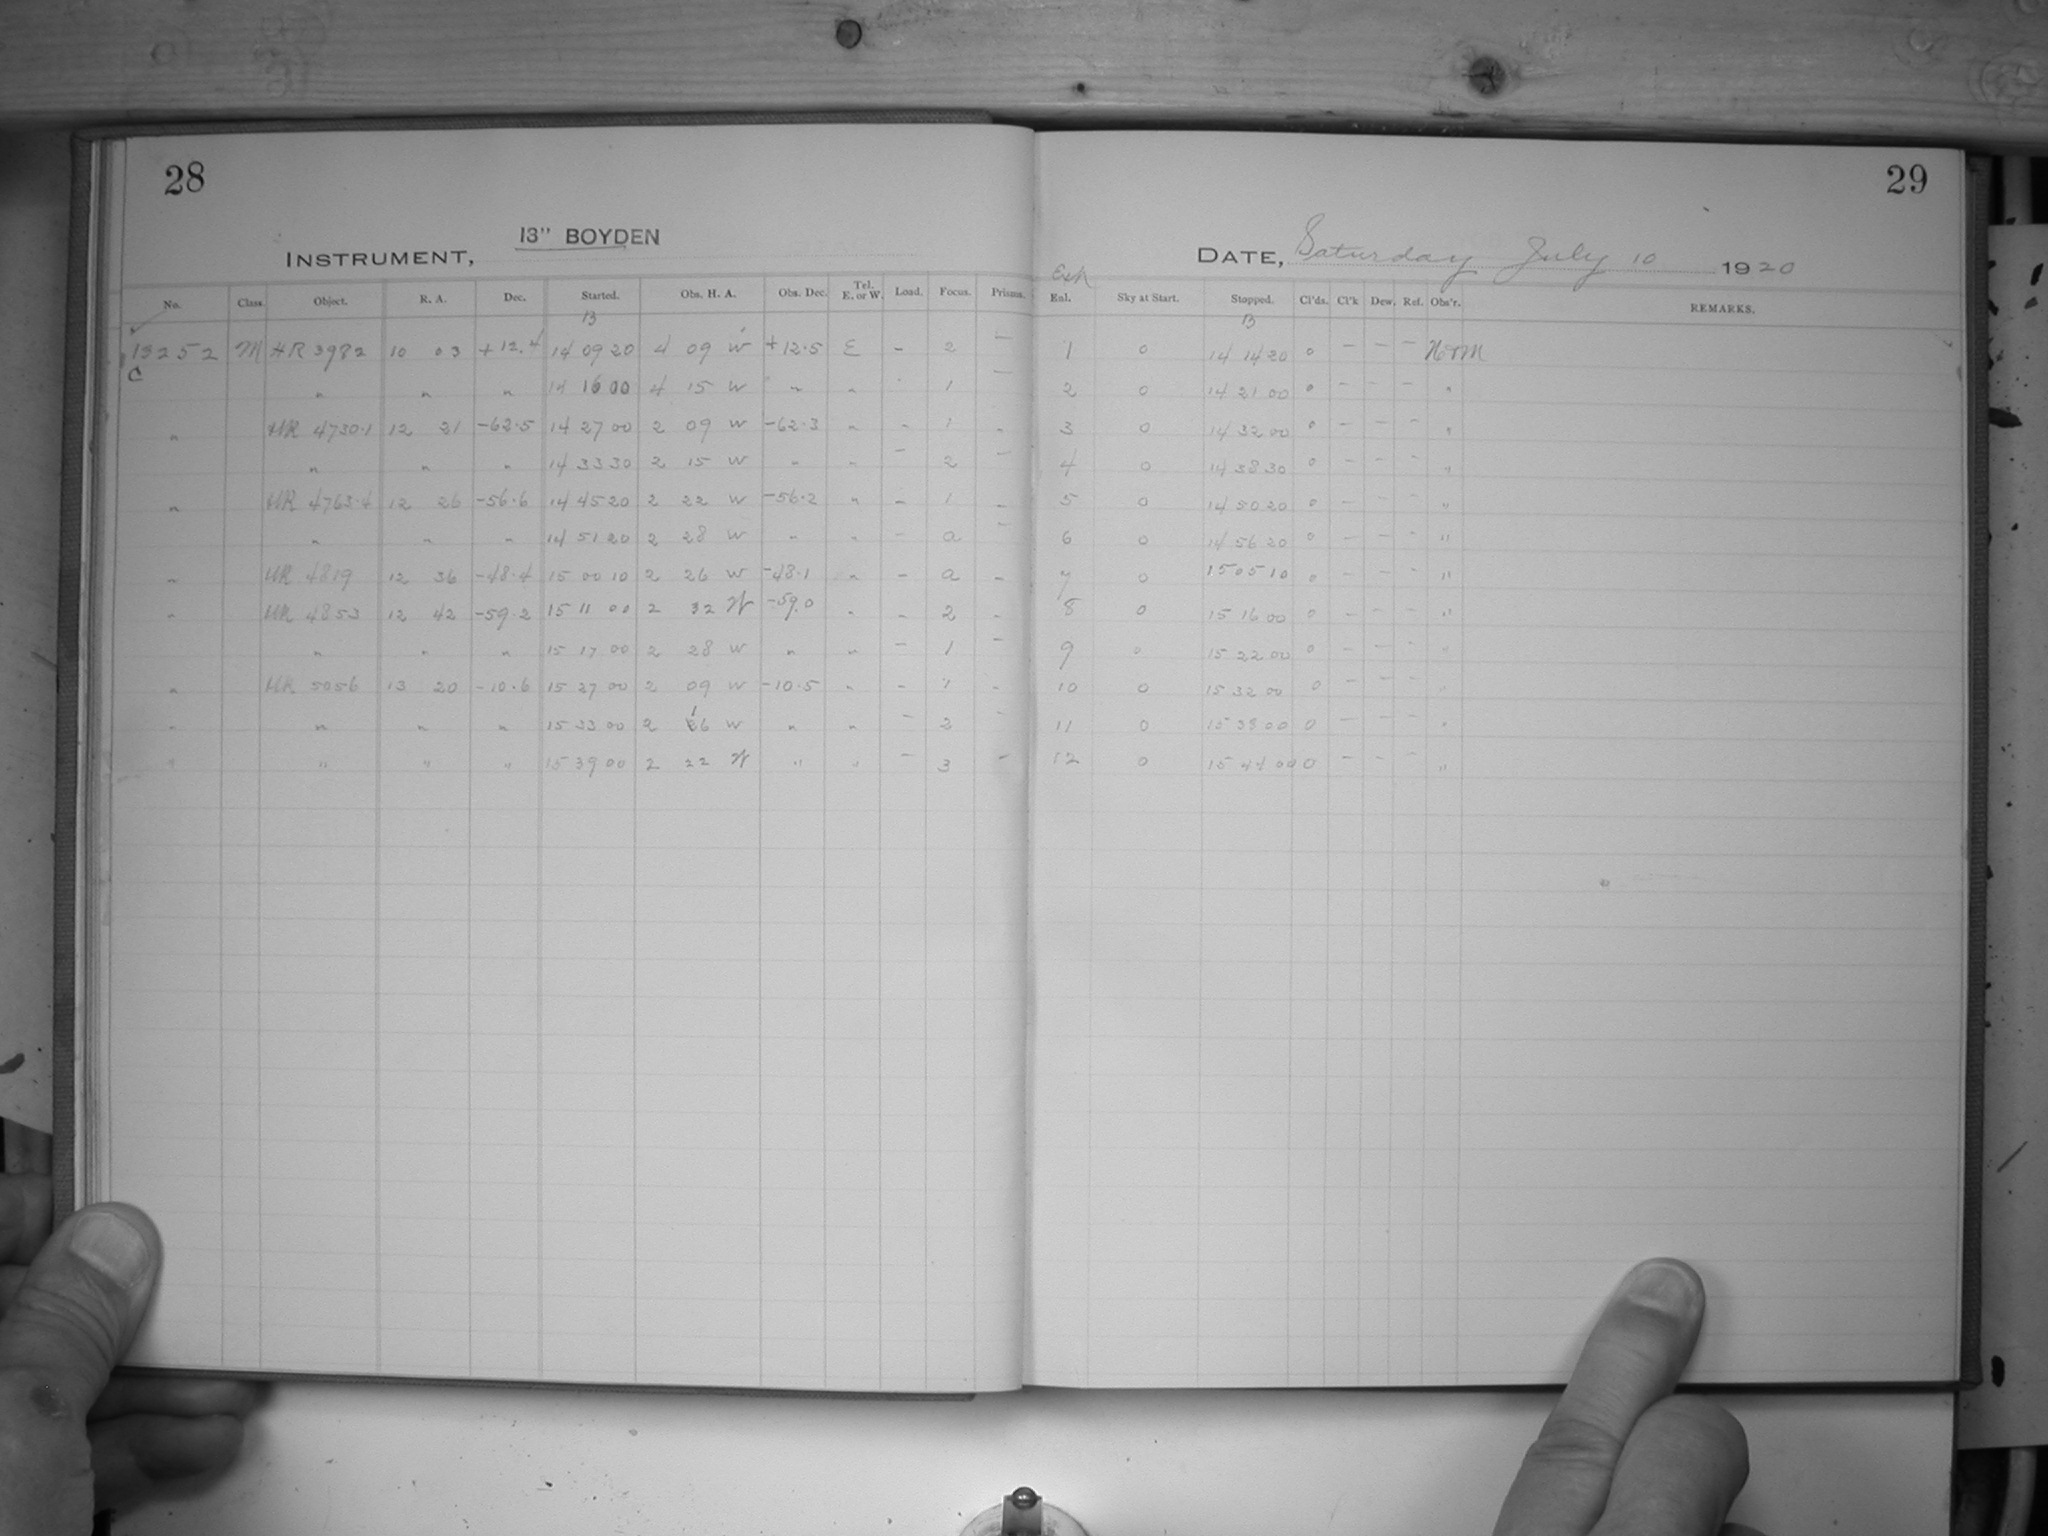 28
29
13" BOYDEN
INSTRUMENT,
DATE, Saturday July 10 1920
No. Class. Object. R. A. Dec. Started. Obs. H. A. Obs. Dec. Tel. E. or W. Load. Focus. Prisms. Exp Enl. Sky at Start. Stopped. Cl'ds. Cl'k Dew. Ref. Obs'r. REMARKS.
B B
13252 M HR 3982 10 03 +12.4 14 09 20 4 09 W +12.5 E - 2 - 1 0 14 14 20 0 - - -
C " " " 14 16 00 4 15 W " " 1 - 2 0 14 21 00 0 - - - "
" HR 4730.1 12 21 -62.5 14 27 00 2 09 W -62.3 " - 1 - 3 0 14 32 00 0 - - - "
" " " 14 33 30 2 15 W " " - 2 - 4 0 14 38 30 0 - - - "
" HR 4763.4 12 26 -56.6 14 45 20 2 22 W -56.2 " - 1 - 5 0 14 50 20 0 - - - "
" " " 14 51 20 2 28 W " " - 2 - 6 0 14 56 20 0 - - - "
" HR 4819 12 36 -48.4 15 00 10 2 26 W -48.1 " - 2 - 7 0 15 05 10 0 - - - "
" HR 4853 12 42 -59.2 15 11 00 2 32 W -59.0 " - 2 - 8 0 15 16 00 0 - - - "
" " " 15 17 00 2 28 W " " - 1 - 9 0 15 22 00 0 - - - "
" HR 5056 13 20 -10.6 15 27 00 2 09 W -10.5 " - 1 - 10 0 15 32 00 0 - - - "
" " " " 15 33 00 2 16 W " " - 2 - 11 0 15 38 00 0 - - - "
" " " " 15 39 00 2 22 W " " - 3 - 12 0 15 44 00 0 - - - "